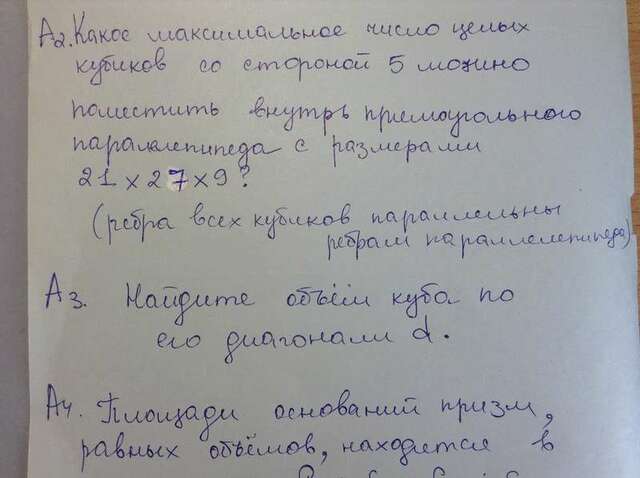 А2. Какое максимальное число целых
кубиков со стороной 5 можно
поместить внутрь прямоугольного
параллепипеда с размерами
21 × 27 × 9?
(ребра всех кубиков параллельны
ребрам параллелепипеда)
А3. Найдите объём куба по
его диагонали d.
А4. Площади оснований призм,
равных объёмов, находится в